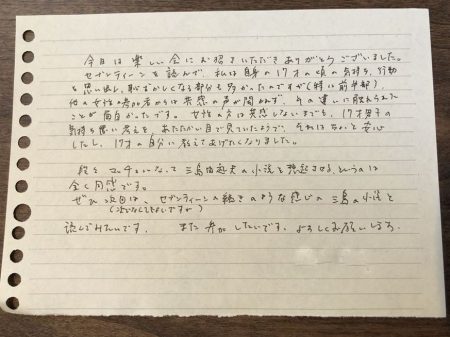 今日は楽しい会にお招きいただきありがとうございました。
セブンティーンを読んで、私は自身の17才の頃の気持ち、行動
を思い返し、恥ずかしくなる部分も多かったのですが(特に前半部)、
他の女性参加者からは共感の声が聞かれず、その違いに触れられた
ことが面白かったです。女性の方は共感しないまでも、17才男子の
気持ち悪い考えを、あたたかい目で見ていたようで、それはちょっと安心
したし、17才の自分に教えてあげたくなりました。
マッチョになって三島由紀夫の小説を想起させるというのは
全く同感です。
ぜひ次回は、セブンティーンの続きのような感じの三島の小説を
読んでみたいです。また参加したいです。よろしくお願いします。